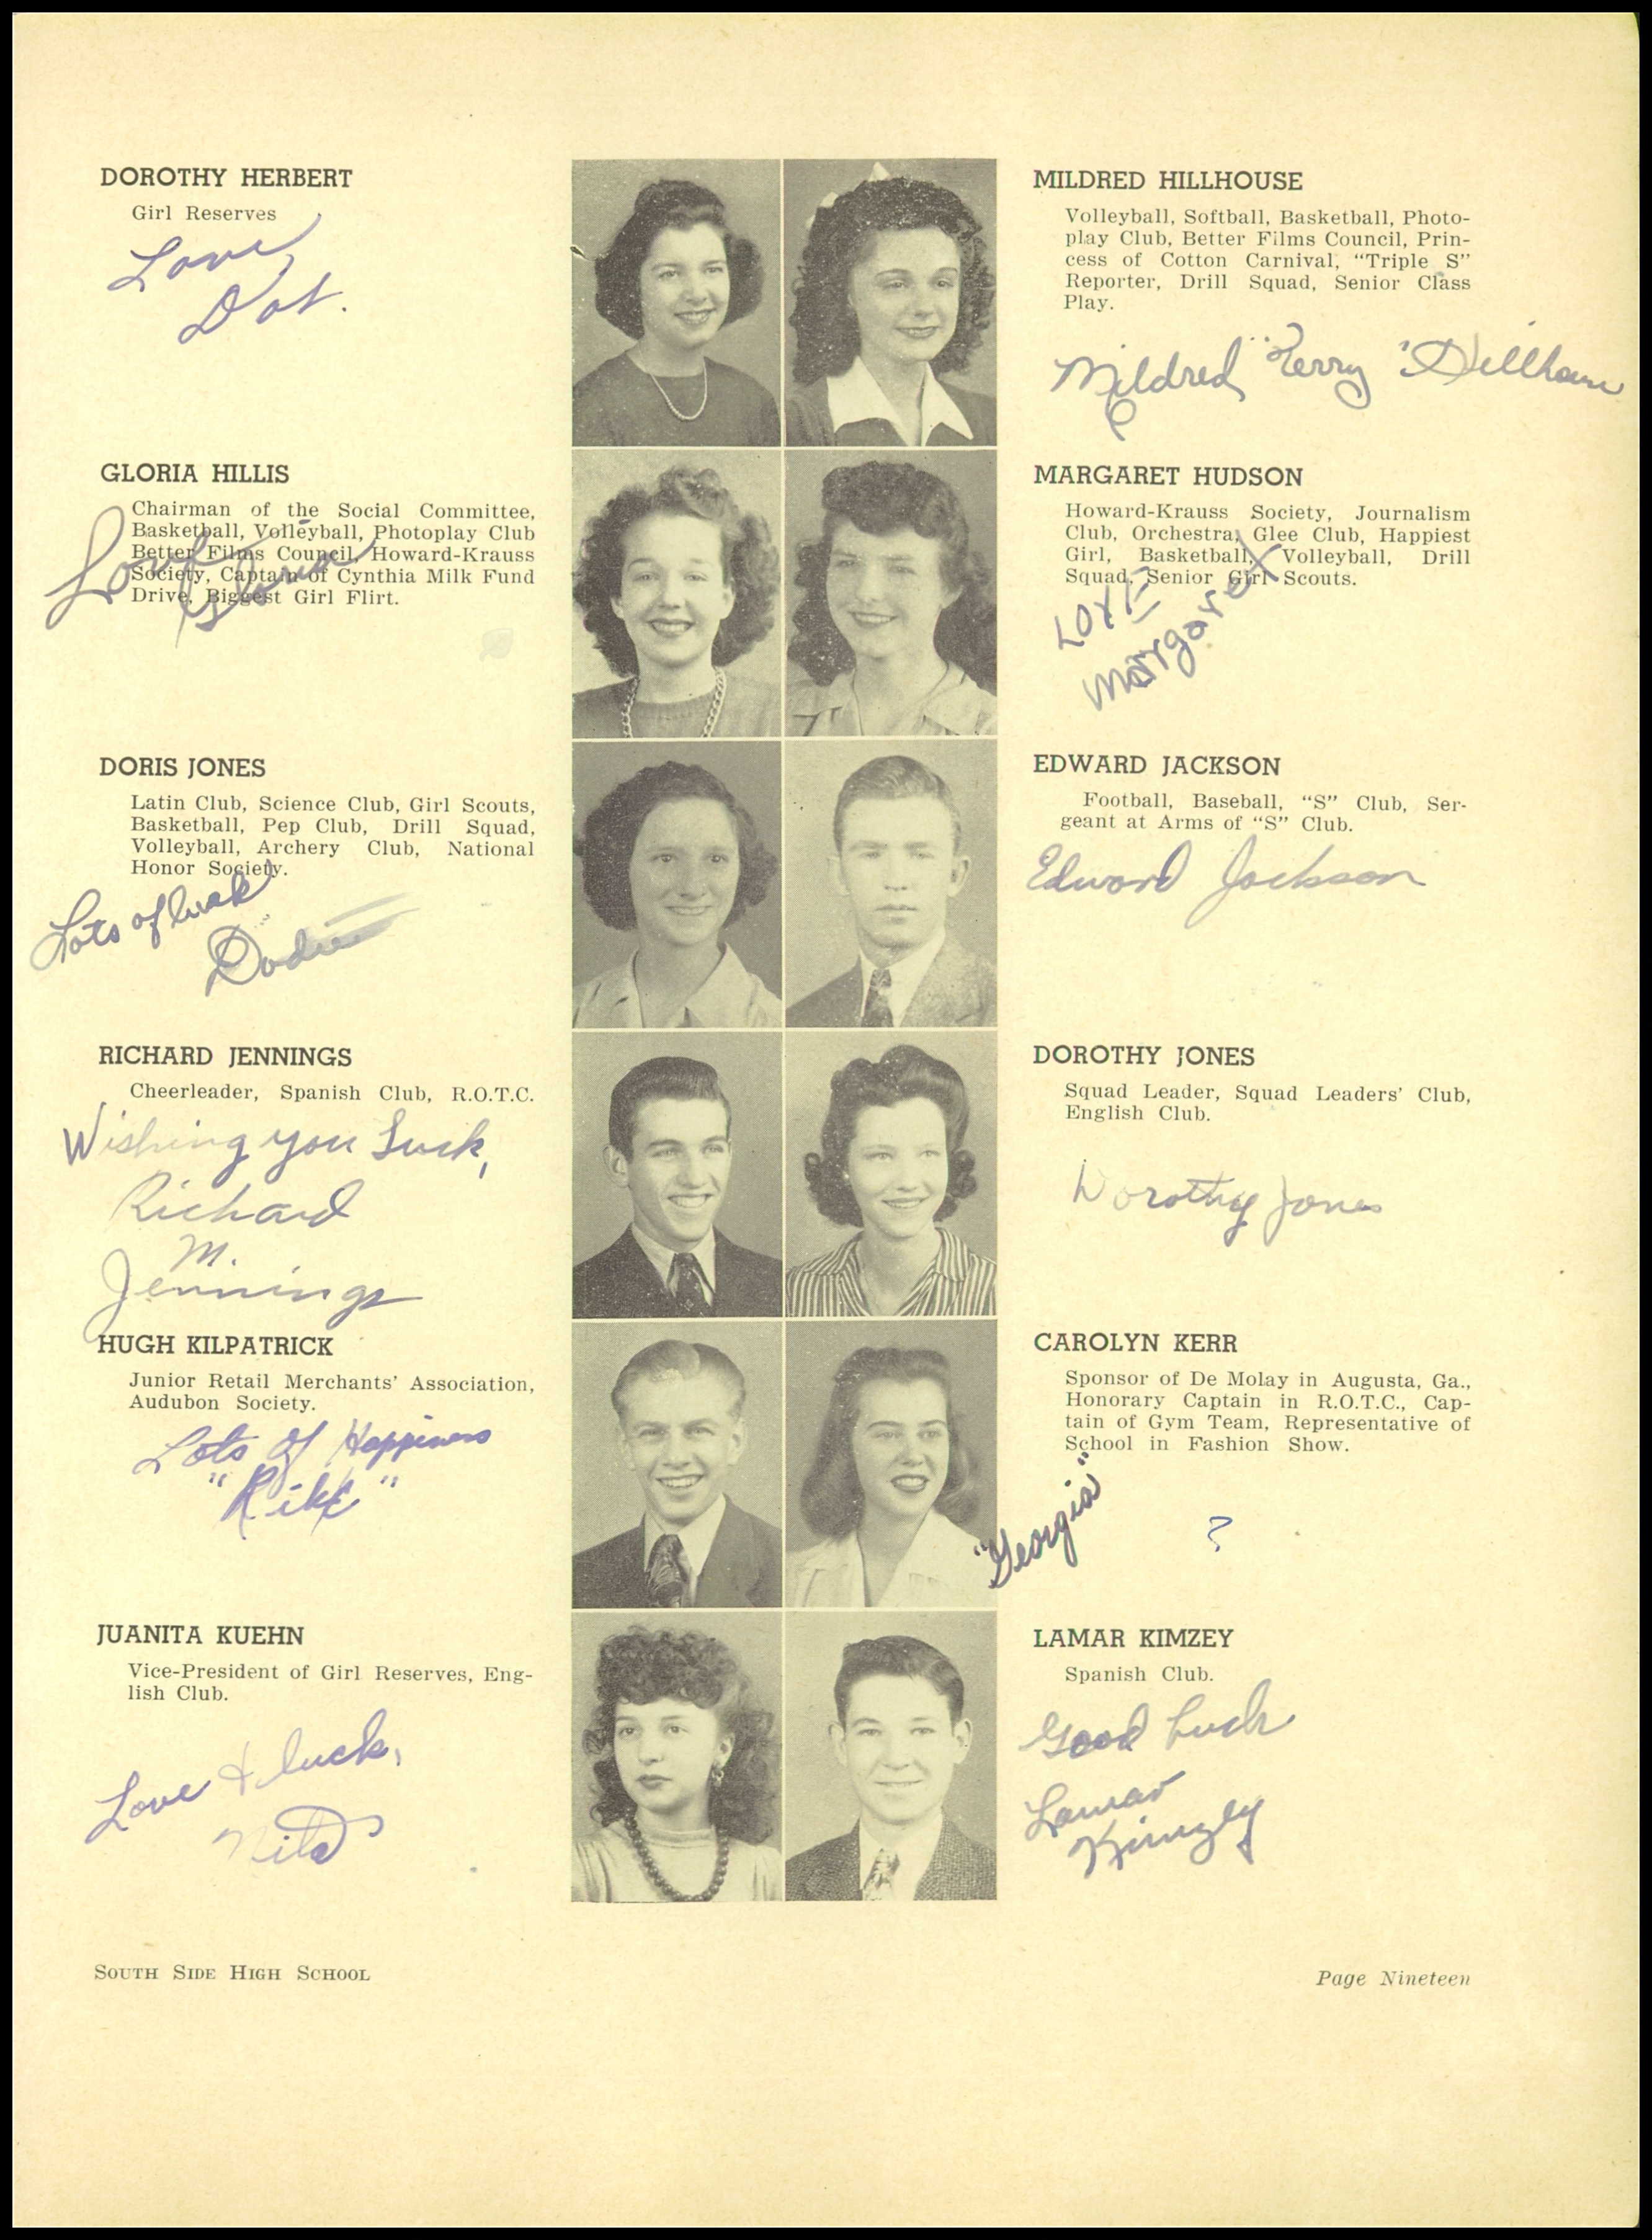 DOROTHY HERBERT
Girl Reserves
Love,
Dot.
GLORIA HILLIS
Chairman of the Social Committee,
Basketball, Volleyball, Photoplay Club
Better Films Council, Howard-Krauss
Society, Captain of Cynthia Milk Fund
Drive, Biggest Girl Flirt.
Love
Gloria
DORIS JONES
Latin Club, Science Club, Girl Scouts,
Basketball, Pep Club, Drill Squad,
Volleyball, Archery Club, National
Honor Society.
Lots of luck
RICHARD JENNINGS
Cheerleader, Spanish Club, R.O.T.C.
Wishing you Luck,
Richard
M.
Jennings
HUGH KILPATRICK
Junior Retail Merchants' Association,
Audubon Society.
Lots Of Happiness
JUANITA KUEHN
Vice-President of Girl Reserves, Eng-
lish Club.
Love & luck,
Nita
MILDRED HILLHOUSE
Volleyball, Softball, Basketball, Photo-
play Club, Better Films Council, Prin-
cess of Cotton Carnival, "Triple S"
Reporter, Drill Squad, Senior Class
Play.
Mildred "Terry" Hillhouse
MARGARET HUDSON
Howard-Krauss Society, Journalism
Club, Orchestra, Glee Club, Happiest
Girl, Basketball, Volleyball, Drill
Squad, Senior Girl Scouts.
LOVE
Margaret
EDWARD JACKSON
Football, Baseball, "S" Club, Ser-
geant at Arms of "S" Club.
Edward Jackson
DOROTHY JONES
Squad Leader, Squad Leaders' Club,
English Club.
Dorothy Jones
CAROLYN KERR
Sponsor of De Molay in Augusta, Ga.,
Honorary Captain in R.O.T.C., Cap-
tain of Gym Team, Representative of
School in Fashion Show.
"Georgia"
?
LAMAR KIMZEY
Spanish Club.
Good Luck
Lamar
Kimzey
SOUTH SIDE HIGH SCHOOL
Page Nineteen